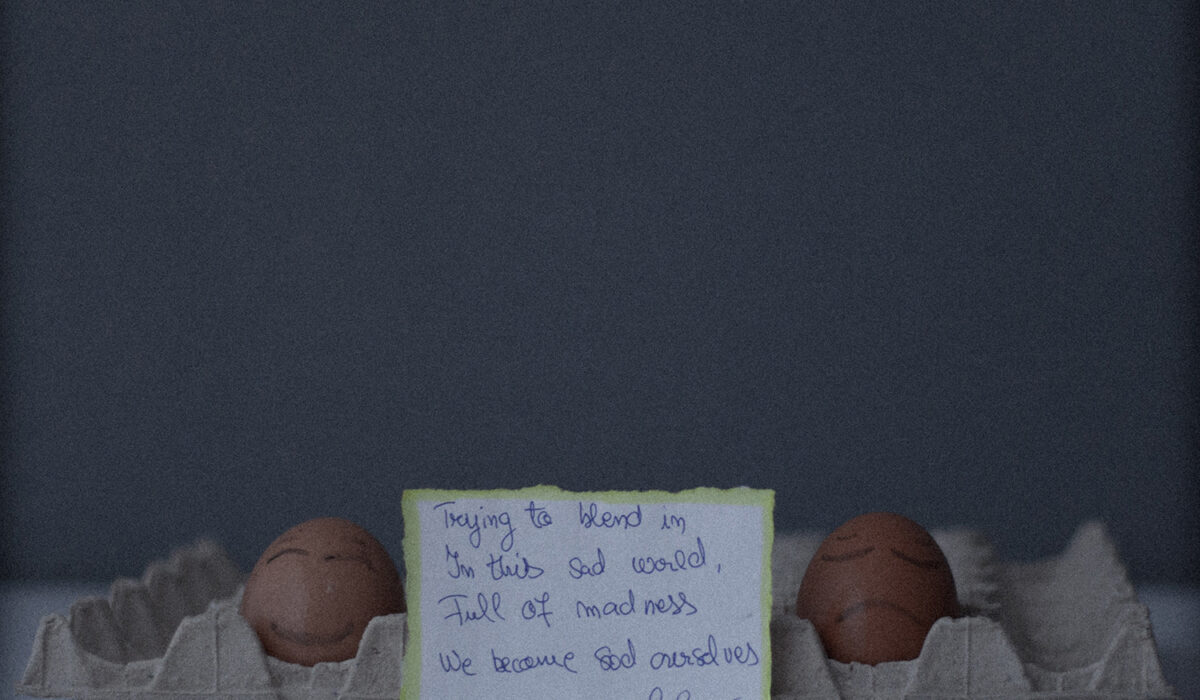 Trying to blend in
In this sad world,
Full of madness
We become sad ourselves